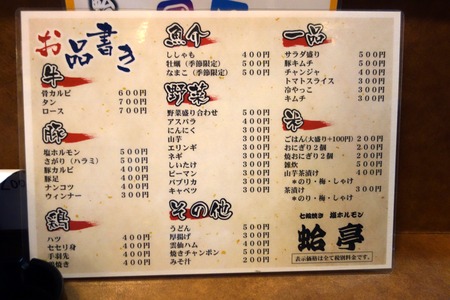 お品書き
牛
骨カルビ 600円
タン 700円
ロース 700円
豚
塩ホルモン 500円
さがり(ハラミ) 500円
豚カルビ 400円
豚足 400円
ナンコツ 400円
ウィンナー 300円
鶏
ハツ 400円
セセリ身 400円
手羽先 400円
焼き 400円
魚介
ししゃも 400円
牡蠣(季節限定) 500円
なまこ(季節限定) 500円
野菜
野菜盛り合わせ 500円
アスパラ 400円
にんにく 300円
山芋 300円
エリンギ 300円
ネギ 300円
しいたけ 300円
ピーマン 300円
パプリカ 300円
キャベツ 300円
その他
うどん 500円
厚揚げ 300円
雲仙ハム 400円
焼きチャンポン 500円
みそ汁 200円
一品
サラダ盛り 500円
豚キムチ 500円
チャンジャ 400円
トマトスライス 300円
冷やっこ 300円
キムチ 300円
米
ごはん(大盛り+100円) 200円
おにぎり2個 200円
焼おにぎり2個 300円
雑炊 500円
山芋茶漬け 500円
*のり・梅・しゃけ
茶漬け 300円
*のり・梅・しゃけ
七輪焼き 塩ホルモン
蛤亭
表示価格は全て税別料金です。